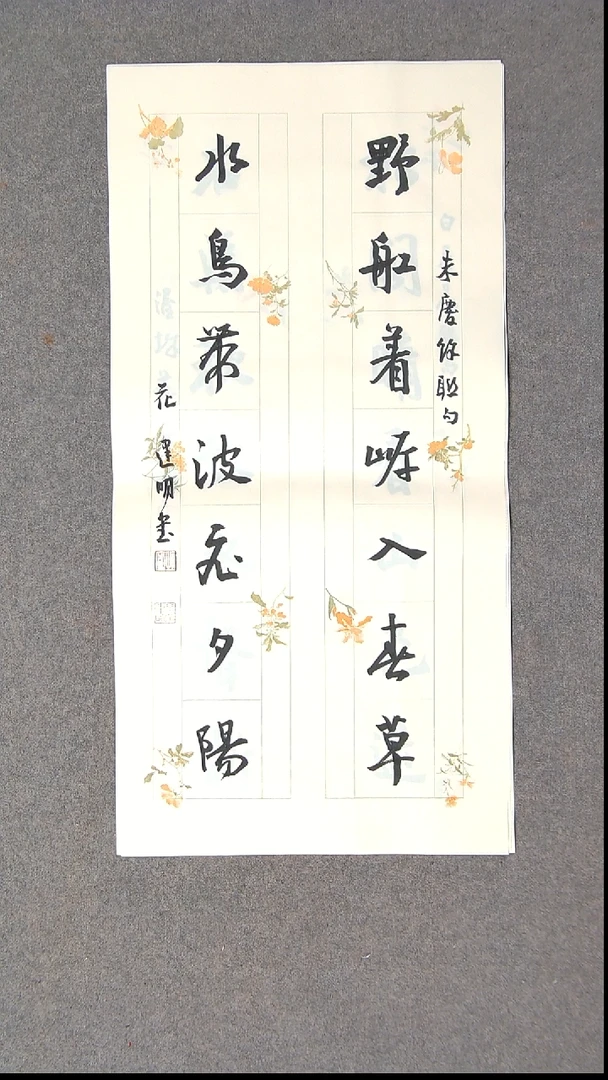 朱慶餘聯句
野舡着岸入春草
水鳥帶波飛夕陽
花建明書